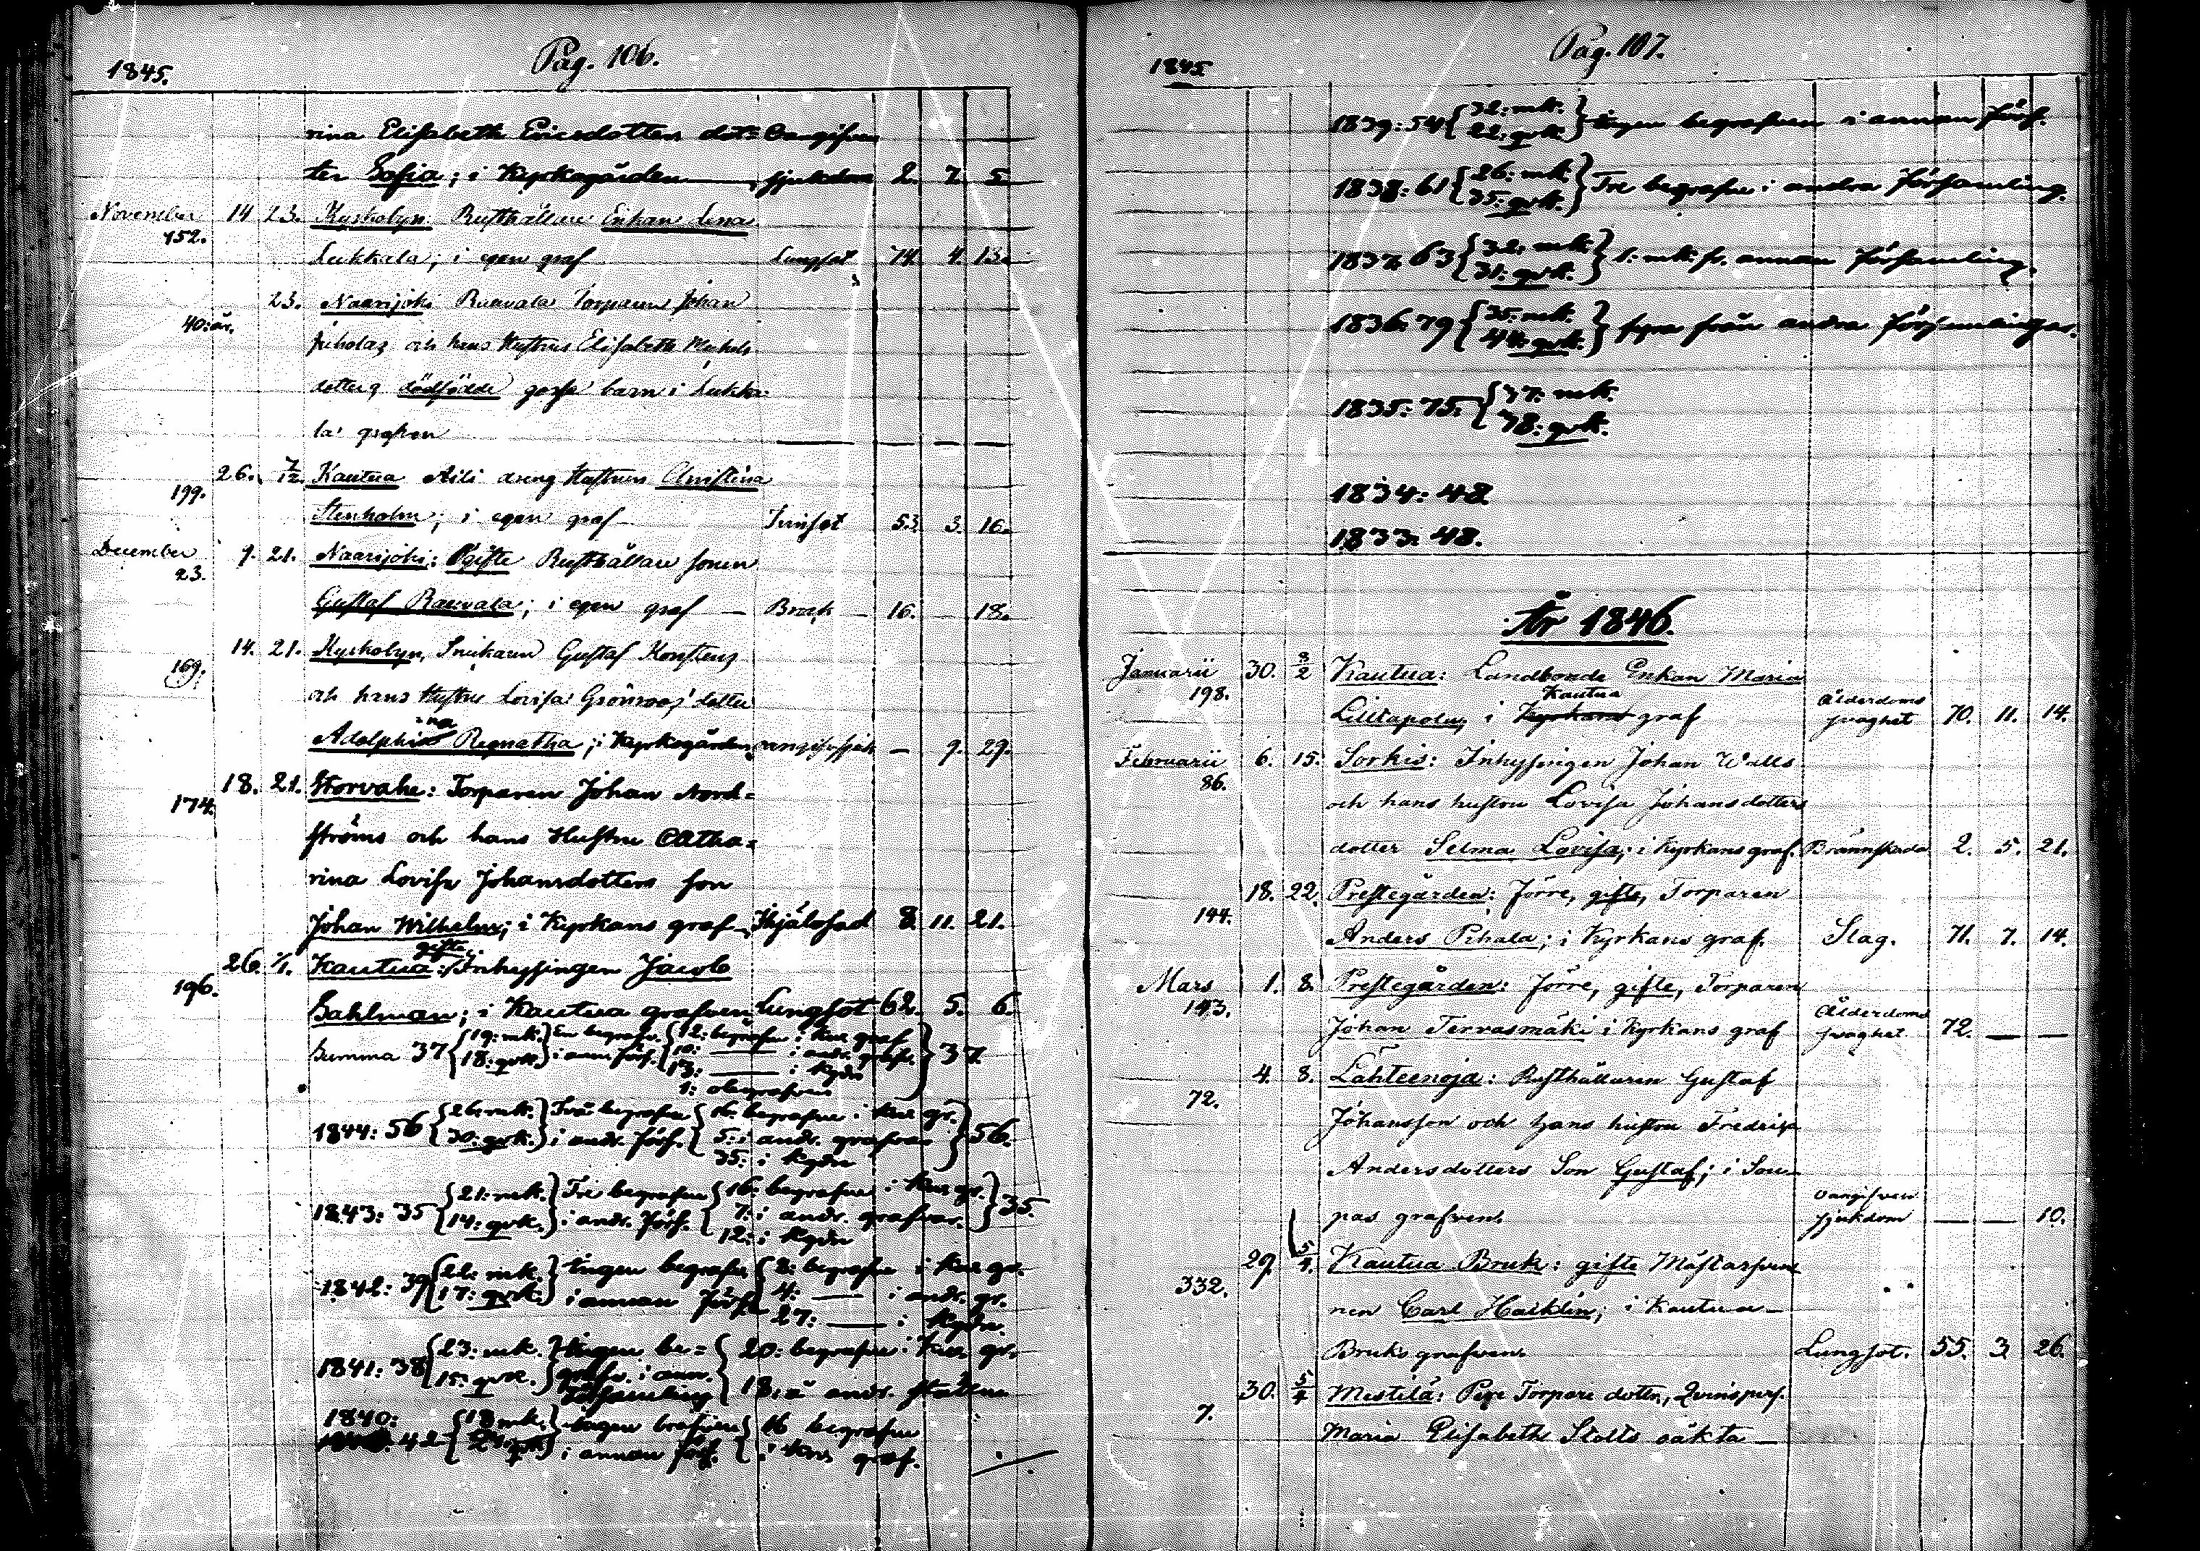 Pag. 106.
1845.
rina Elisabeth Ericsdotters dot= Oangifven
ter Sofia; i Kyrkogården sjukdom 2. 7. 5.
November 14 23. Kyrkobyn Rusthållare Enkan Lena
152.
Lukkala; i egen graf Lungsot 74. 4. 13.
23. Naarijoki Ruavala Torparen Johan
40: år.
och hans Hustrus Elisabeth Michels
dotters dödfödde gosse barn i Lukka
la: grafven
26. 7/12. Kautua Aili dreng Hustrun Christina
199.
Stenholm; i egen graf Tvinsot 53. 3. 16.
December 9. 21. Naarijoki: Ogifte Rusthållare sonen
23.
Gustaf; i egen graf Bråck 16. 18.
14. 21. Kyrkobyn, Snickaren Gustaf Konstens
169.
och hans Hustrus Lovisa Grönroos' dotter
ina
Adolphina Regnatha; i Kyrkogården — 9. 29.
18. 21. Korvake: Torparen Johan Nord=
174.
ströms och hans Hustru Catha=
rina Lovisa Johansdotters son
Johan Wilhelm; i Kyrkans graf 8. 11. 21.
gifte
26. 1/1. Kautua: Inhysingen Jacob
196.
Sahlman; i Kautua grafven Lungsot 62. 5. 6.
Summa 37 {19: mk. 18: qvk.} En begrafven i ann. förs. {12: begrafne i Kns graf 10: — i andr. grafv. 13: — i Kgdn 1: obegrafven} 37.
1844: 56 {26: mk. 30: qvk.} Två begrafne i andr. förs. {16: begrafne i Kns gr. 5: i andr. grafvar 35: i Kgdn} 56.
1843: 35 {21: mk. 14: qvk.} Tre begrafne i andr. förs. {16: begrafne i Kns gr. 7: i andr. grafvar. 12: i Kgdn} 35.
1842: 39 {22: mk. 17: qvk.} Ingen begrafven i annan förs. {8: begrafne i Kns gr. 4: — i andr. gr. 27: — i Kgdn.
1841: 38 {23: mk. 15: qvk.} Ingen be= grafv. i ann. församling {20: begrafne i Kns. gr. 18: å andr. ställen
1840:
42 {18 mk. 24 qvk} Ingen i annan förs. {16 begrafne i Kns graf.
Pag. 107.
1845
1839: 54 {32: mk. 22: qvk.} Ingen begrafven i annan förs.
1838: 61 {26: mk. 35: qvk.} Tre begrafne i andra församling.
1837: 63 {32: mk. 31: qvk.} 1: mk. fr. annan församling.
1836: 79 {35: mk. 44: qvk.} fyra från andra församlingar.
1835: 75. {37: mk. 38: qvk.
1834: 48.
1833: 48.
År 1846.
Januarii 30. 8/2 Kautua: Landbonde Enkan Maria
198.
Kautua
Lillapolu, i Kyrkans graf Ålderdoms svaghet 70. 11. 14.
Februarii 6. 15. Sorkis: Inhysingen Johan Walls
86.
och hans hustru Lovisa Johansdotters
dotter Selma Lovisa; i Kyrkans graf. Brännskada 2. 5. 21.
18. 22. Prestegården: Förre, gifte, Torparen
144.
Anders Pihala; i Kyrkans graf. Slag. 71. 7. 14.
Mars 1. 8. Prestegården: Förre, gifte, Torparen
143.
Johan Tervasmäki i Kyrkans graf Ålderdoms svaghet 72. — —
4. 8. Lähteenoja: Rusthållaren Gustaf
72.
Johansson och hans hustru Fredrika
Andersdotters Son Gustaf; i Sou
pas grafven. oangifven sjukdom — — 10.
29. 5/4. Kautua Bruk: gifte Mästarsven
332.
nen Carl Haiklin; i Kautua
Bruks grafven. Lungsot. 55. 3. 26.
30. 5/4 Mestilä: Torpare dotter, Qvinspers.
7.
Maria Elisabeth Stolts oäkta